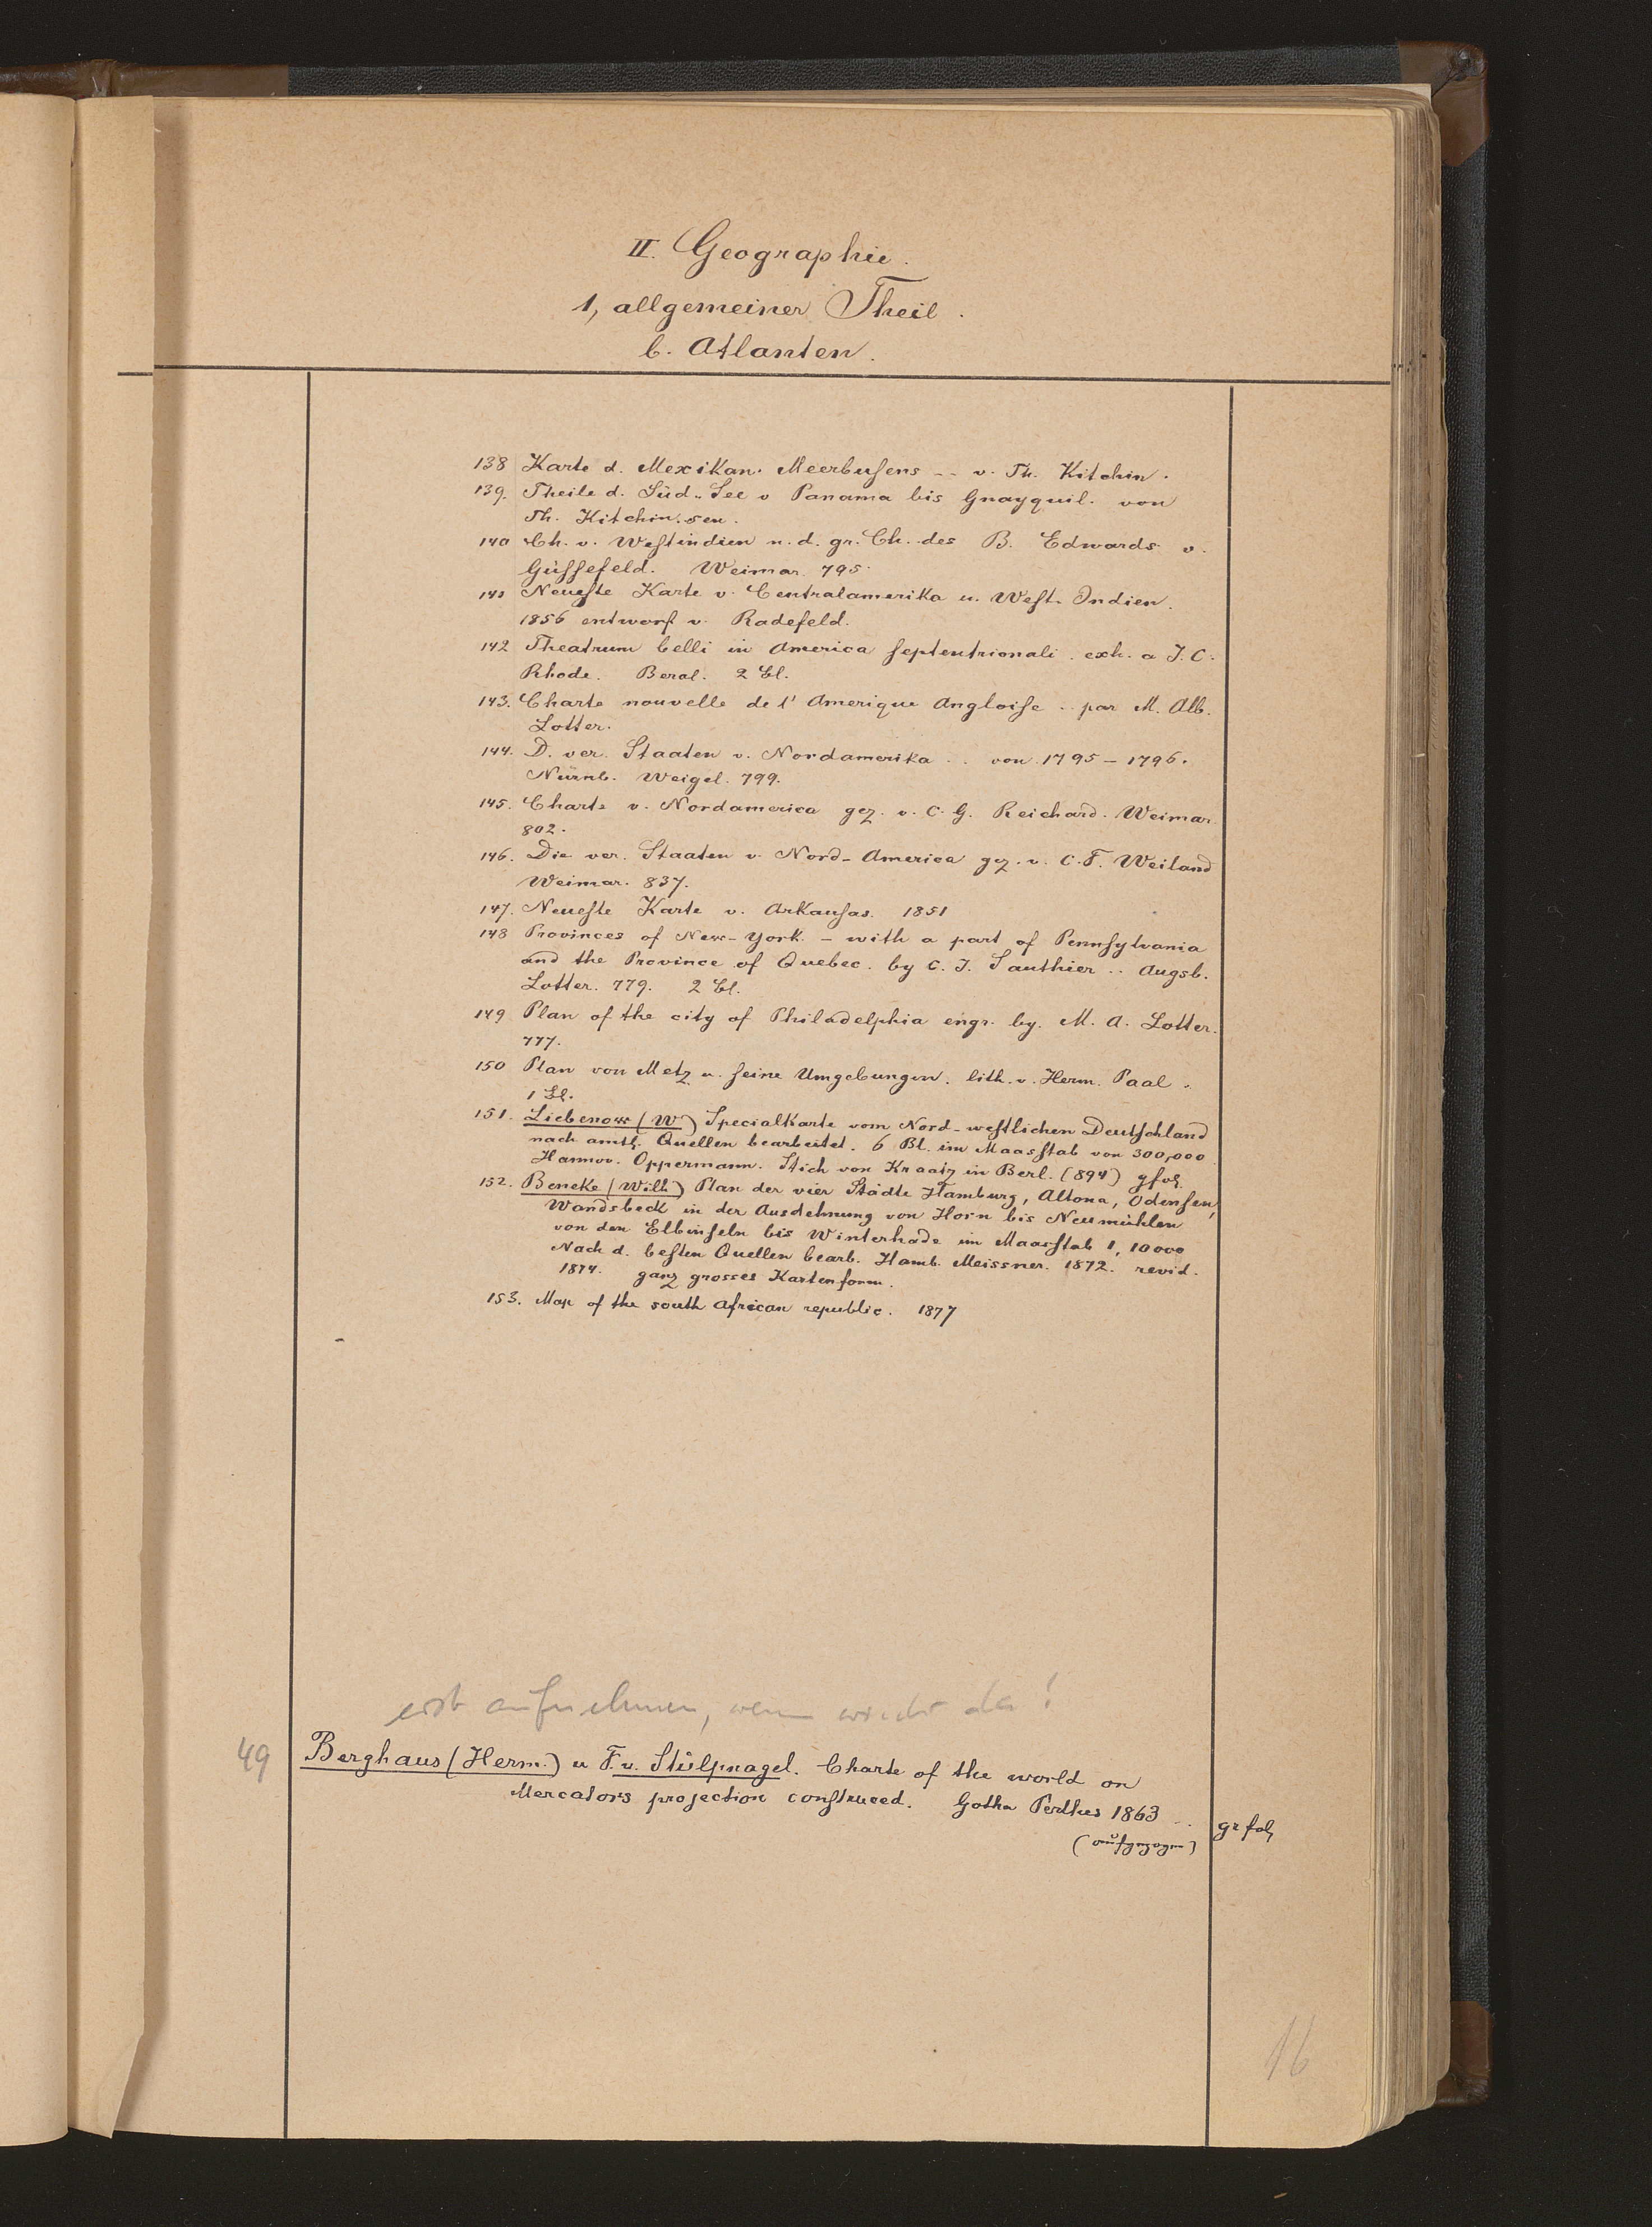 II. Geographie.
1, allgemeiner Theil.
b. Atlanten.
138 Karte d. Mexikan. Meerbusens -- v. Th. Kitchin.
139. Theile d. Süd-See v Panama bis Gnayquil. von
Th. Kitchin. sen.
140 Ch. v. Westindien n. d. gr. Ch. des B. Edwards v.
Güssefeld. Weimar. 795.
141 Neueste Karte v. Centralamerika u. West-Indien.
1856 entworf v. Radefeld.
142 Theatrum belli in America septentrionali. exh. a J. C.
Rhode. Berol. 2 Bl.
143. Charte nouvelle de l' Amerique Angloise .. par M. Alb.
Lotter.
144. D. ver. Staaten v. Nordamerika .. von 1795 - 1796.
Nürnb. Weigel. 799.
145. Charte v. Nordamerica gez. v. C. G. Reichard. Weimar
802.
146. Die ver. Staaten v. Nord-America gez. v. C. F. Weiland
Weimar. 837.
147. Neueste Karte v. Arkansas. 1851
148 Provinces of New-York. - with a part of Pennsylvania
and the Province of Quebec. by C. J. Sauthier .. Augsb.
Lotter. 779. 2 Bl.
149 Plan of the city of Philadelphia engr. by. M. A. Lotter.
777.
150 Plan von Metz u. seine Umgebungen. lith. v. Herm. Paal.
1 Bl.
151. Liebenow (W) Specialkarte vom Nord-westlichen Deutschland
nach amtl. Quellen bearbeitet. 6 Bl. im Maasstab von 300,000
Hannov. Oppermann. Stich von Kraatz in Berl. (894) gfol.
152. Beneke (Wilh) Plan der vier Städte Hamburg, Altona, Odensen,
Wandsbeck in der Ausdehnung von Horn bis Neumühlen
von den Elbinseln bis Winterhade im Maasstab 1, 10000
Nach d. besten Quellen bearb. Hamb. Meissner. 1872. revid.
1874. ganz grosses Kartenform.
153. Map of the south African republic. 1877
erst aufnehmen, wenn wieder da!
49 Berghaus (Herm.) u F. v. Stülpnagel. Charte of the world on
Mercators projection construced. Gotha Perthes 1863 .. gr fol
(aufgezogen)
16